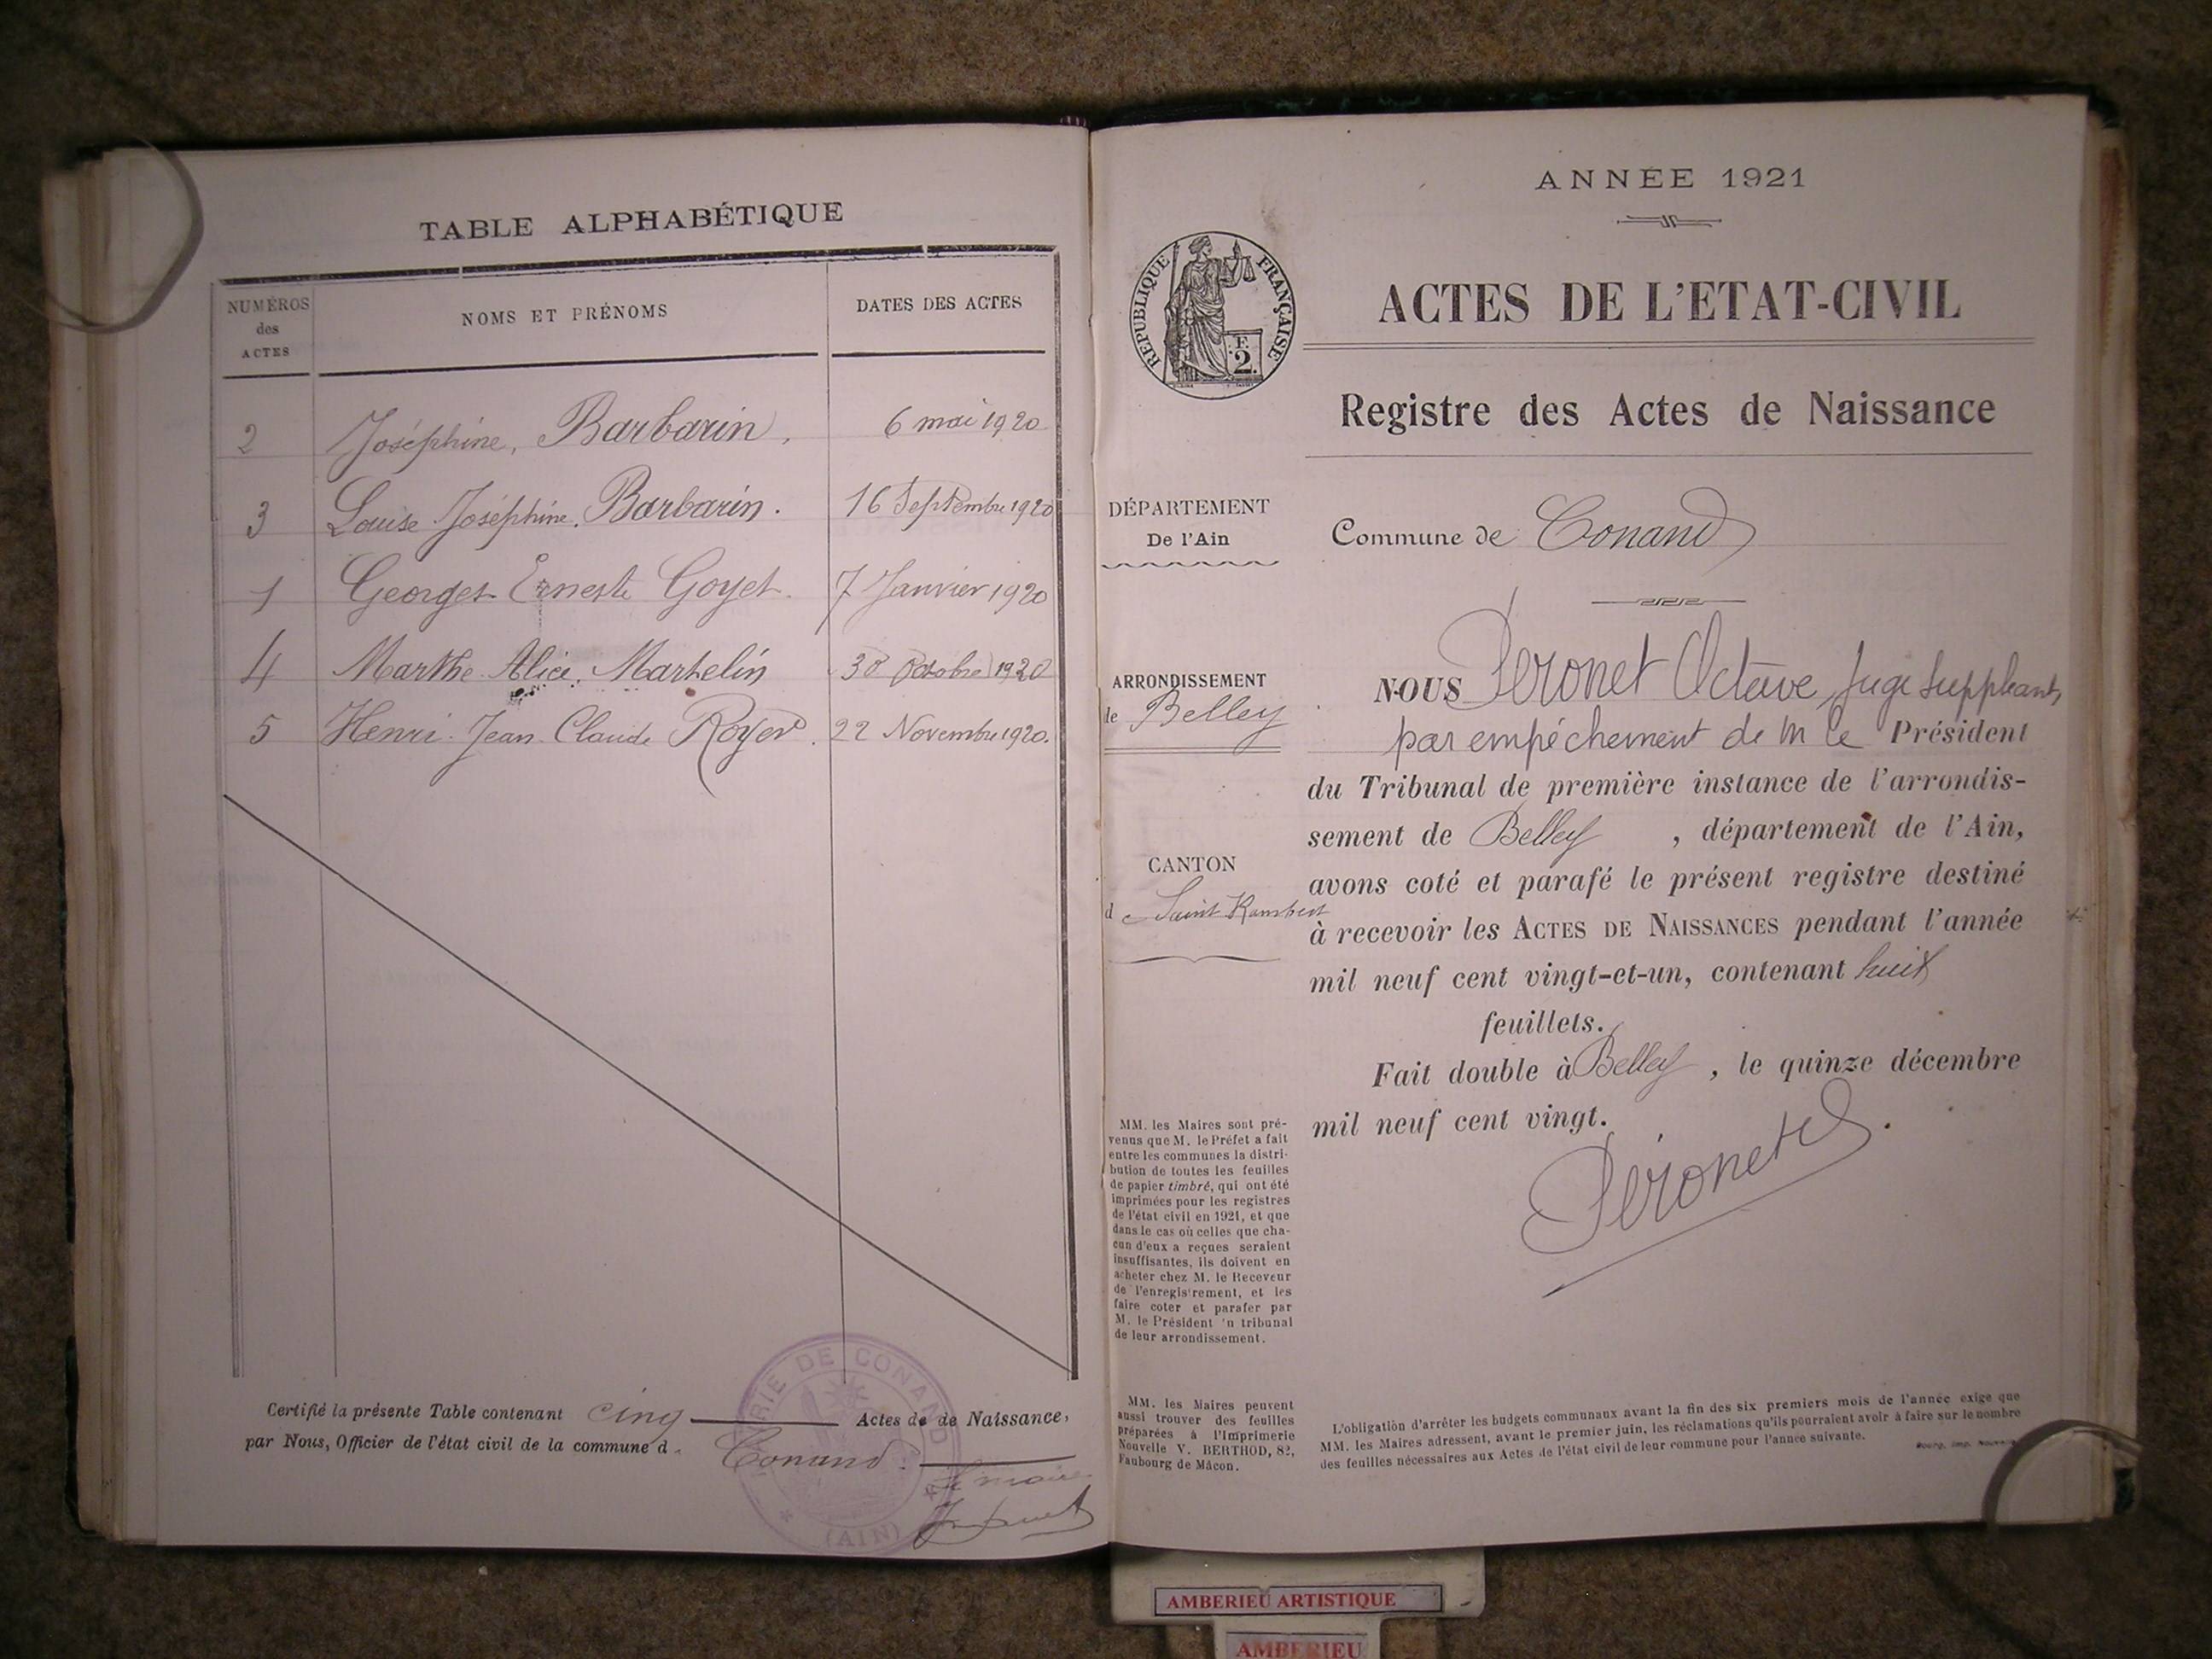 TABLE ALPHABÉTIQUE
NUMÉROS
des
ACTES
NOMS ET PRÉNOMS
DATES DES ACTES
2 Joséphine, Barbarin, 6 mai 1920
3 Louise Joséphine. Barbarin. 16 Septembre 1920
1 Georges Ernest Goyet. 7 Janvier 1920
4 Marthe Alice. Marthelin 30 Octobre 1920
5 Henri Jean Claude Royer. 22 Novembre 1920.
Certifié la présente Table contenant cinq Actes de de Naissance,
par Nous, Officier de l'état civil de la commune d
Conand.
Le maire
MAIRIE DE CONAND
(AIN)
ANNÉE 1921
RÉPUBLIQUE FRANÇAISE
E.
2.
ACTES DE L'ETAT-CIVIL
Registre des Actes de Naissance
DÉPARTEMENT
De l'Ain
ARRONDISSEMENT
de Belley
CANTON
de Saint Rambert
MM. les Maires sont pré-
venus que M. le Préfet a fait
entre les communes la distri-
bution de toutes les feuilles
de papier timbré, qui ont été
imprimées pour les registres
de l'état civil en 1921, et que
dans le cas où celles que cha-
cun d'eux a reçues seraient
insuffisantes, ils doivent en
acheter chez M. le Receveur
de l'enregis'rement, et les
faire coter et parafer par
M. le Président 'n tribunal
de leur arrondissement.
MM. les Maires peuvent
aussi trouver des feuilles
préparées à l'Imprimerie
Nouvelle V. BERTHOD, 82,
Faubourg de Mâcon.
Commune de Conand
NOUS Péronet Octave, Juge Suppléant,
par empêchement de M le Président
du Tribunal de première instance de l'arrondis-
sement de Belley , département de l'Ain,
avons coté et parafé le présent registre destiné
à recevoir les ACTES DE NAISSANCES pendant l'année
mil neuf cent vingt-et-un, contenant huit
feuillets.
Fait double à Belley , le quinze décembre
mil neuf cent vingt.
Péronet
L'obligation d'arrêter les budgets communaux avant la fin des six premiers mois de l'année exige que
MM. les Maires adressent, avant le premier juin, les réclamations qu'ils pourraient avoir à faire sur le nombre
des feuilles nécessaires aux Actes de l'état civil de leur commune pour l'année suivante.
Bourg, Imp. Nouvelle
AMBERIEU ARTISTIQUE
AMBERIEU